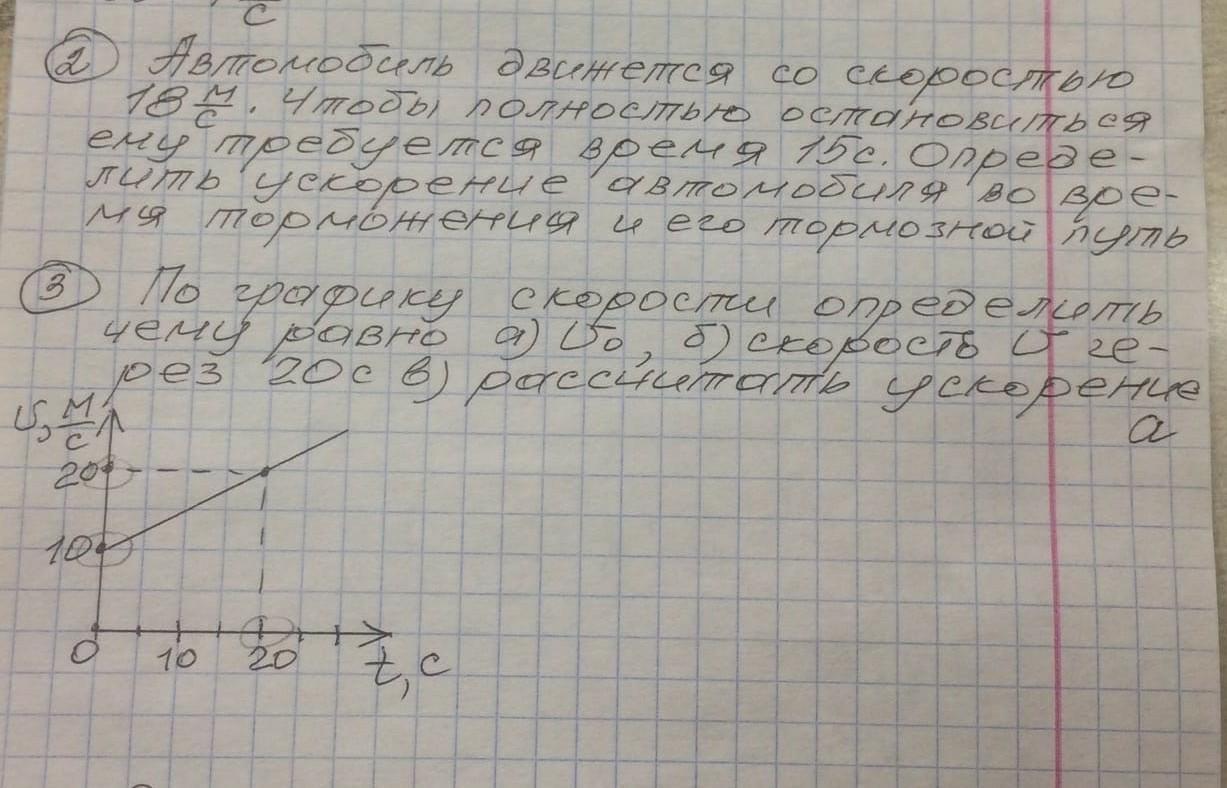 с
2 Автомобиль движется со скоростью
18 м/с. Чтобы полностью остановиться
ему требуется время 15с. Опреде-
лить ускорение автомобиля во вре-
мя торможения и его тормозной путь
3 По графику скорости определить
чему равно а) υ₀, б) скорость υ че-
рез 20с в) рассчитать ускорение
a
υ, м/с
20
10
0 10 20
t, с